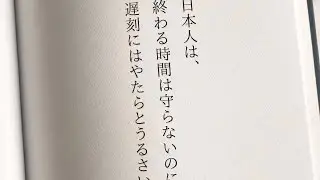 日本人は、
終わる時間は守らないのに
遅刻にはやたらとうるさい